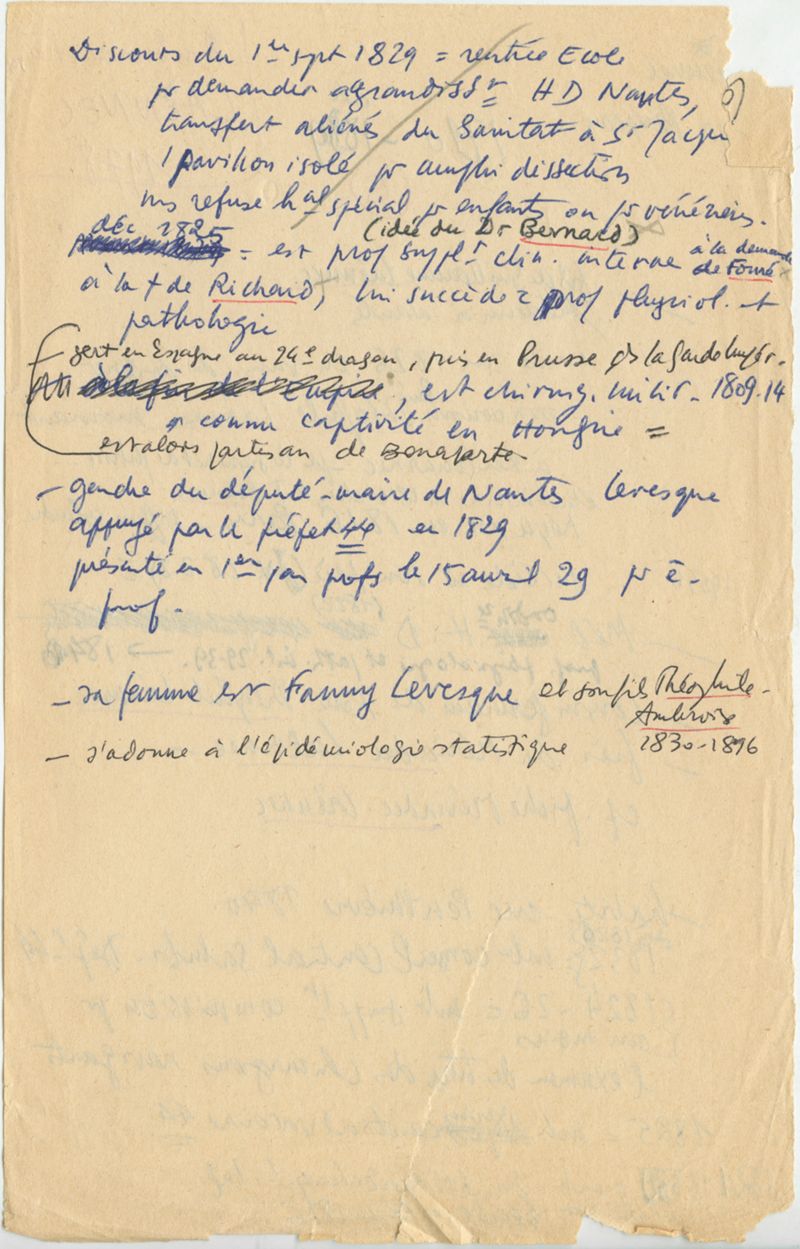 Discours du 1er sept 1829 = rentrée Ecole
pr demander agrandisst HD Nantes,
transfert aliénés du Sanitat à St Jacques
1 pavillon isolé pr amphi dissection
ms refuse hal spécial pr enfants ou pr vénériens.
(idée du Dr Bernard)
déc 1825 = est prof suppl. clin. interne à la demande de Fouré
à la + de Richard, lui succède = prof physiol. et
pathologie
- sert en Espagne au 24e dragon, puis en Prusse ds la garde impér.
à la fin de l'Empire, est chirurg. milit. 1809.14
connu captivité en Hongrie =
est alors partisan de Bonaparte
- gendre du député-maire de Nantes Levesque
appuyé par le préfet 44 en 1829
présenté en 1er par profs le 15 avril 29 pr ê.
prof.
- sa femme est Fanny Levesque et son fils Théophile-
Ambroise
1830-1896
- s'adonne à l'épidémiologie statistique